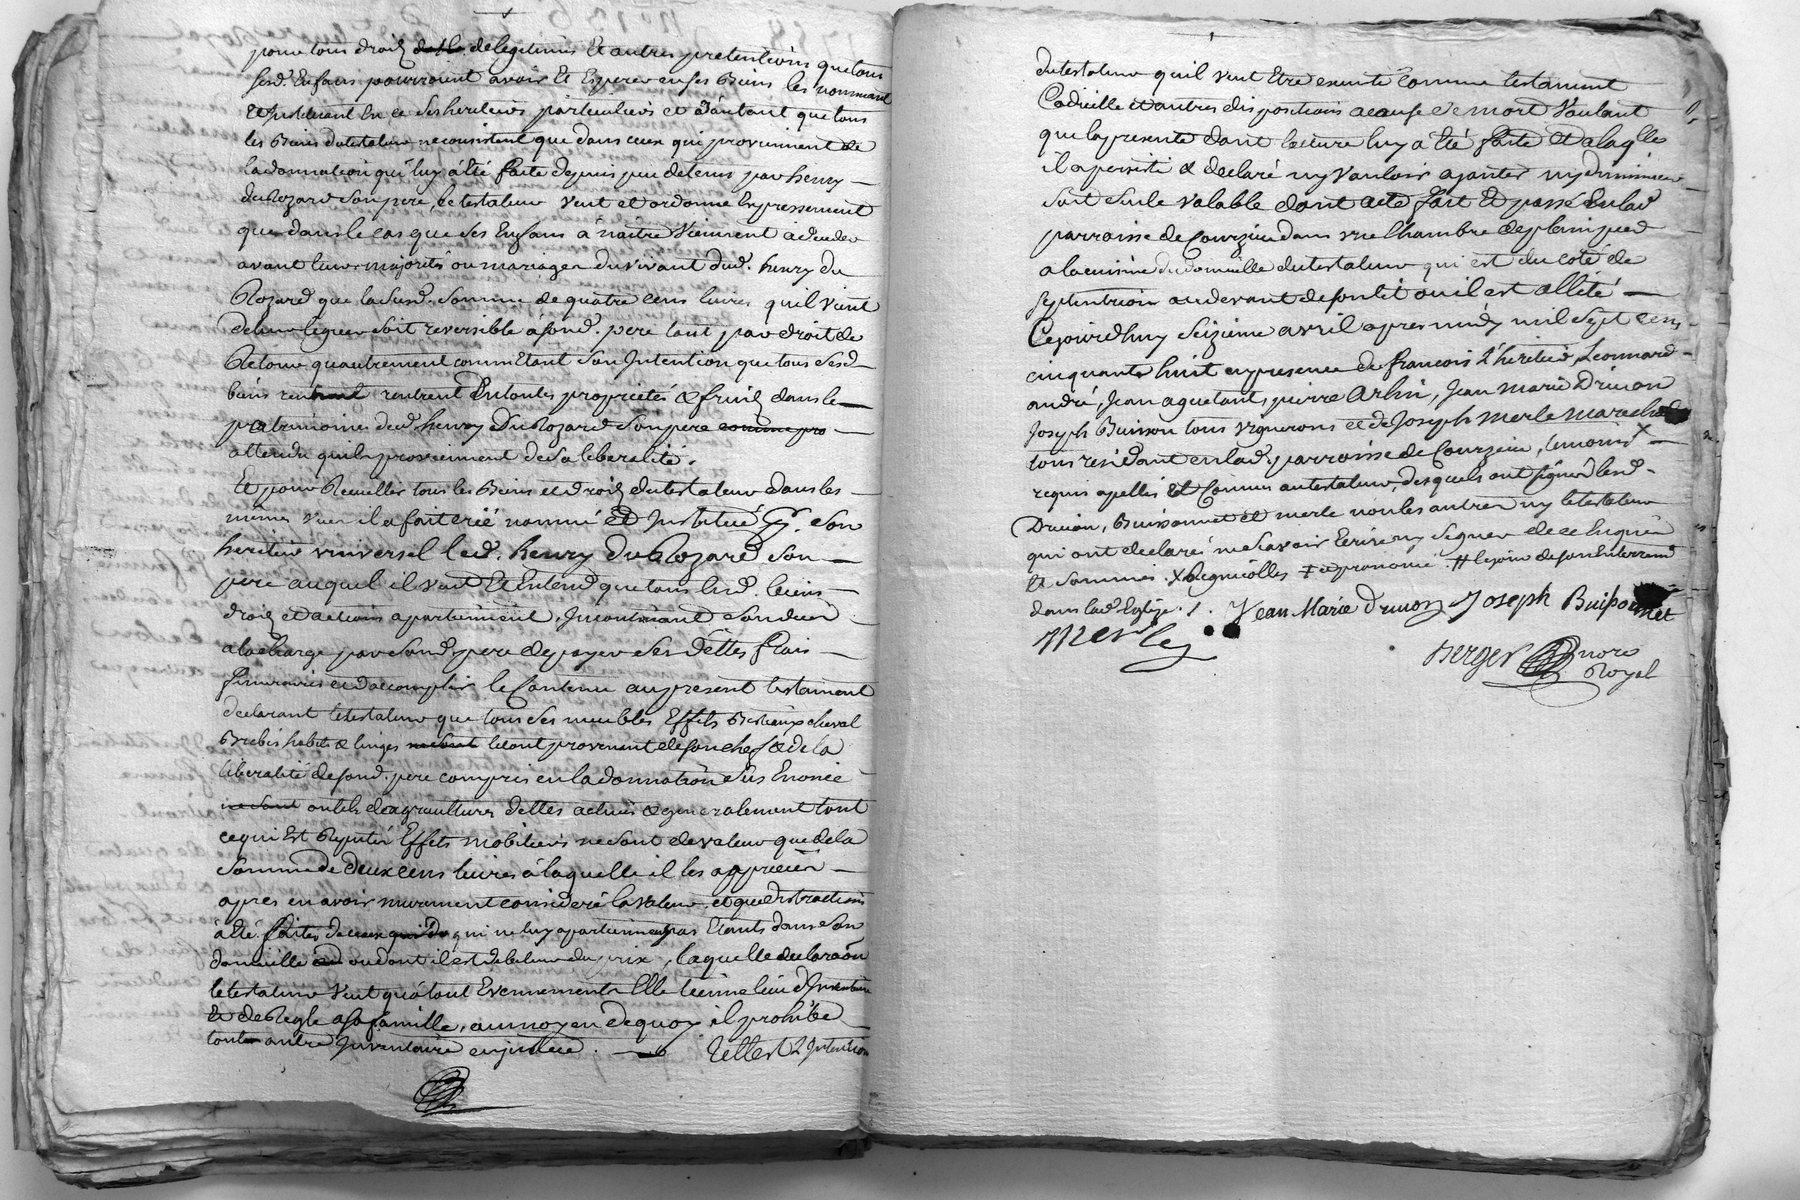 pour tous droits de legitimes et autres pretentions que tous
sesd. Enfans pourroient avoir et Esperer en ses Biens les nommant
et instituant en ce ses heritiers particuliers et d'autant que tous
les Biens du testateur ne consistent que dans ceux qui proviennent de
la donnation qui luy a été faite depuis peu de tems par henry
du Rozard son pere, le testateur veut et ordonne Expressement
que dans le cas que ses Enfans à naitre viennent a deceder
avant leur majorité ou mariage du vivant dud. henry du
Rozard que la susd. somme de quatre cens livres qu'il vient
de leur leguer soit reversible à sond. pere tant par droit de
Retour qu'autrement comm'Etant son Intention que tous sesd
biens rentrent En toutes proprietés & fruits dans le
patrimoine dud henry Du Rozard son pere
attendu qu'ils proviennent de sa liberalité.
Et pour Recueillir tous les Biens et droits du testateur dans les
mêmes vues il a fait créé nommé et Institué son
heritier vniversel led. henry du Rozard son
pere auquel il veut Et Entend que tous lesd. biens
droits et actions apartiennent Incontinant son deces
a la charge par sond. pere de payer ses Dettes frais
funeraires et d'accomplir le Contenu au present testament
declarant le testateur que tous ses meubles Effets Bestiaux cheval
Brebis habits & linges le tout provenant de son chef & de la
liberalité de sond. pere compris en la donnation sus Enoncée
outils d'agriculture dettes actives & generalement tout
ce qui Est Reputé Effets mobiliers ne sont de valeur que de la
somme de deux cens livres à laquelle il les apprecier
apres en avoir murement consideré la valeur, et que distractions
a été faites de ceux qui ne luy apartiennent pas Etants dans son
domicille ou dont il est debiteur du prix, laquelle declaraôn
le testateur veut qu'à tout Evennement Elle tienne lieu d'Inventaire
Et de Regle a sa famille, au moyen de quoy il prohibe
toute autre Inventaire en justice. Telle est l'Intention
du testateur qu'il veut Etre executé Comme testament
Codicille et autres dispositions a cause de mort Voulant
que la present dont lecture luy a été faite Et a laqlle
il a persisté & declaré n'y vouloir ajouter ny diminuer
soit seule valable dont acte fait Et passé En lad
parroisse de Courzieu dans vne Chambre de plein pied
a la cuisine du domicille du testateur qui est du coté de
septentrion au devant de son lit ou il est allité
Cejourdhuy Seizieme avril apres midy mil Sept cens
cinquante huit en presence de francois L'heritier, Leonnard
andré, Jean aguetant, pierre Arlin, Jean marie Drivon
Joseph Buisson tous vignerons et de Joseph Merle marechal
tous residant en lad. parroisse de Courzieu, temoins
requis apellés Et Connus au testateur, desquels ont signé lesd
Drivon, Buissonnet et merle non les autres ny le testateur
qui ont declarés ne scavoir Ecrire ny signer de ce Enquis
Et sommés. X # le jour de son Enterrement
dans lad. Eglise. /. Jean Marie drivon Joseph Buissonnet
Merle
Berger nore
Royal